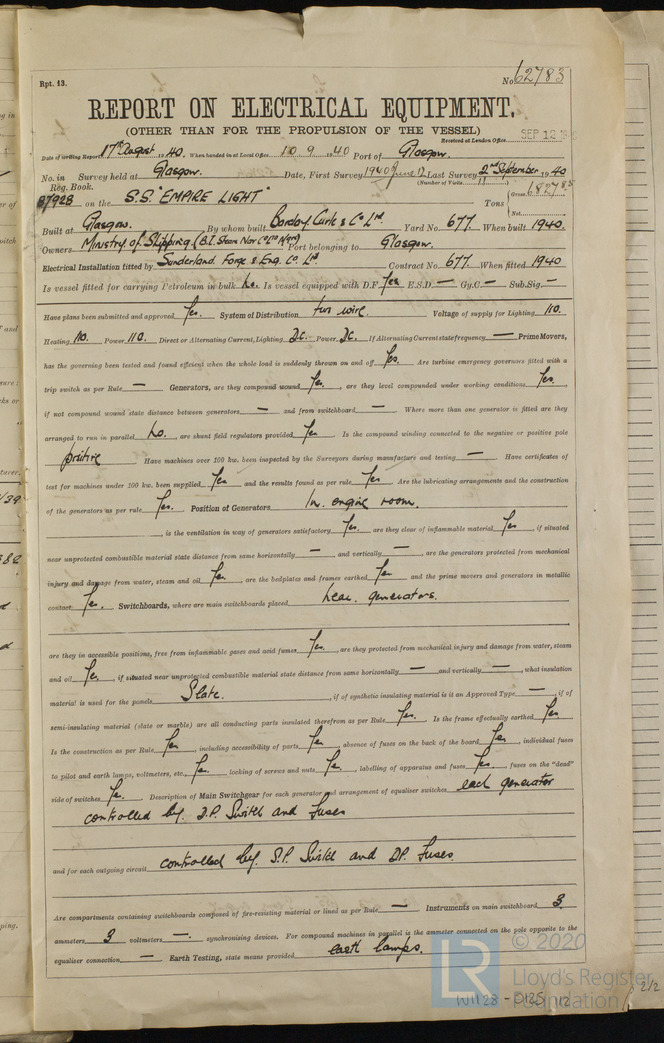 Rpt. 13.
No. 62783
REPORT ON ELECTRICAL EQUIPMENT.
(OTHER THAN FOR THE PROPULSION OF THE VESSEL)
Received at London Office SEP 12
Date of writing Report 17th August 1940. When handed in at Local Office 10 9 1940 Port of Glasgow.
No. in Survey held at Glasgow. Date, First Survey 1940 June 12 Last Survey 2nd September 1940
Reg. Book. (Number of Visits 11)
87928 on the S.S. "EMPIRE LIGHT" Tons Gross
Net
Built at Glasgow. By whom built Barclay Curle & Co Ltd. Yard No. 677. When built 1940.
Owners Ministry of Shipping (B.I. Steam Nav Co Ltd Mgrs) Port belonging to Glasgow.
Electrical Installation fitted by Sunderland Forge & Eng. Co. Ltd Contract No. 677. When fitted 1940
Is vessel fitted for carrying Petroleum in bulk No. Is vessel equipped with D.F. Yes E.S.D. — Gy.C. — Sub.Sig. —
Have plans been submitted and approved Yes. System of Distribution two wire Voltage of supply for Lighting 110.
Heating 110. Power 110. Direct or Alternating Current, Lighting D.C. Power D.C. If Alternating Current state frequency — Prime Movers,
has the governing been tested and found efficient when the whole load is suddenly thrown on and off Yes. Are turbine emergency governors fitted with a
trip switch as per Rule — Generators, are they compound wound Yes, are they level compounded under working conditions Yes,
if not compound wound state distance between generators — and from switchboard — Where more than one generator is fitted are they
arranged to run in parallel No, are shunt field regulators provided Yes Is the compound winding connected to the negative or positive pole
positive Have machines over 100 kw. been inspected by the Surveyors during manufacture and testing — Have certificates of
test for machines under 100 kw. been supplied Yes and the results found as per rule Yes Are the lubricating arrangements and the construction
of the generators as per rule Yes. Position of Generators In engine room.
, is the ventilation in way of generators satisfactory Yes, are they clear of inflammable material Yes, if situated
near unprotected combustible material state distance from same horizontally — and vertically —, are the generators protected from mechanical
injury and damage from water, steam and oil Yes, are the bedplates and frames earthed Yes and the prime movers and generators in metallic
contact Yes. Switchboards, where are main switchboards placed near generators.
are they in accessible positions, free from inflammable gases and acid fumes Yes, are they protected from mechanical injury and damage from water, steam
and oil Yes, if situated near unprotected combustible material state distance from same horizontally — and vertically —, what insulation
material is used for the panels Slate., if of synthetic insulating material is it an Approved Type —, if of
semi-insulating material (slate or marble) are all conducting parts insulated therefrom as per Rule Yes. Is the frame effectually earthed Yes
Is the construction as per Rule Yes, including accessibility of parts Yes, absence of fuses on the back of the board Yes, individual fuses
to pilot and earth lamps, voltmeters, etc., Yes locking of screws and nuts Yes, labelling of apparatus and fuses Yes., fuses on the "dead"
side of switches Yes. Description of Main Switchgear for each generator and arrangement of equaliser switches each generator
controlled by D.P. Switch and Fuses
and for each outgoing circuit controlled by S.P. Switch and DP. Fuses.
Are compartments containing switchboards composed of fire-resisting material or lined as per Rule — Instruments on main switchboard 3
ammeters 3 voltmeters —. synchronising devices. For compound machines in parallel is the ammeter connected on the pole opposite to the
equaliser connection — Earth Testing, state means provided earth lamps.
LR
© 2020
Lloyd's Register
Foundation
W1128-0125 1/2